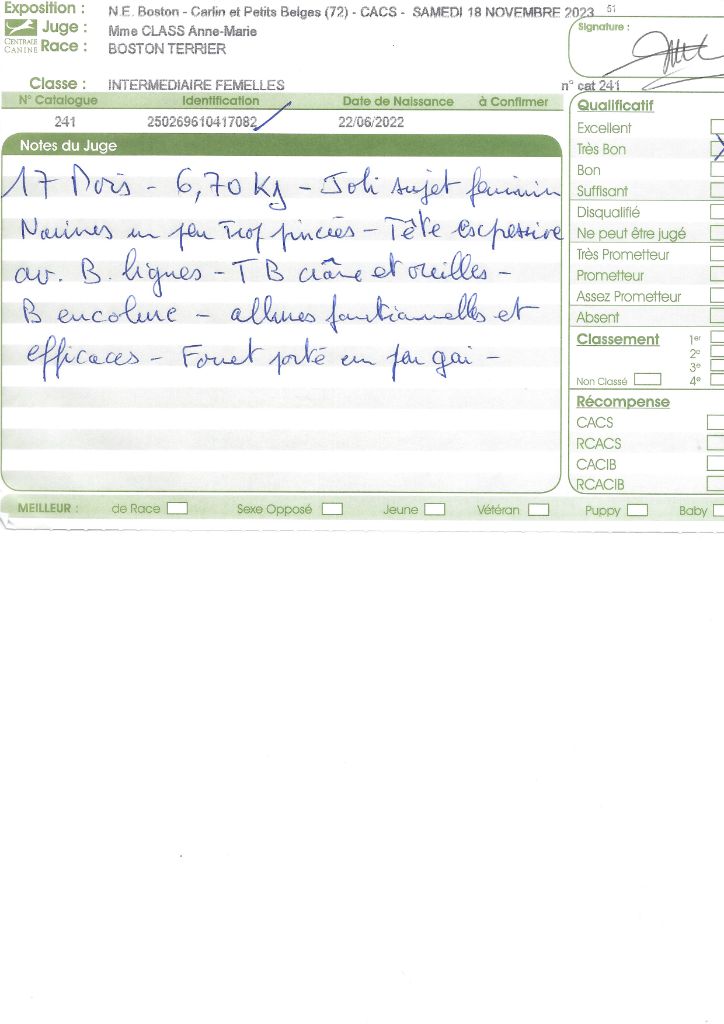 Exposition : N.E. Boston - Carlin et Petits Belges (72) - CACS - SAMEDI 18 NOVEMBRE 2023 51
Juge : Mme CLASS Anne-Marie
CENTRALE CANINE
Race : BOSTON TERRIER
Signature :
Classe : INTERMEDIAIRE FEMELLES
n° cat 241
N° Catalogue Identification Date de Naissance à Confirmer
241 250269610417082 22/06/2022
Notes du Juge
17 Mois - 6,70 Kg - Joli sujet féminin
Narines un peu trop pincées - Tête expressive
av. B. lignes - TB crâne et oreilles -
B encolure - allures fonctionnelles et
efficaces - Fouet porté un peu gai -
Qualificatif
Excellent
Très Bon
Bon
Suffisant
Disqualifié
Ne peut être jugé
Très Prometteur
Prometteur
Assez Prometteur
Absent
Classement 1er
2e
3e
Non Classé 4e
Récompense
CACS
RCACS
CACIB
RCACIB
MEILLEUR : de Race Sexe Opposé Jeune Vétéran Puppy Baby